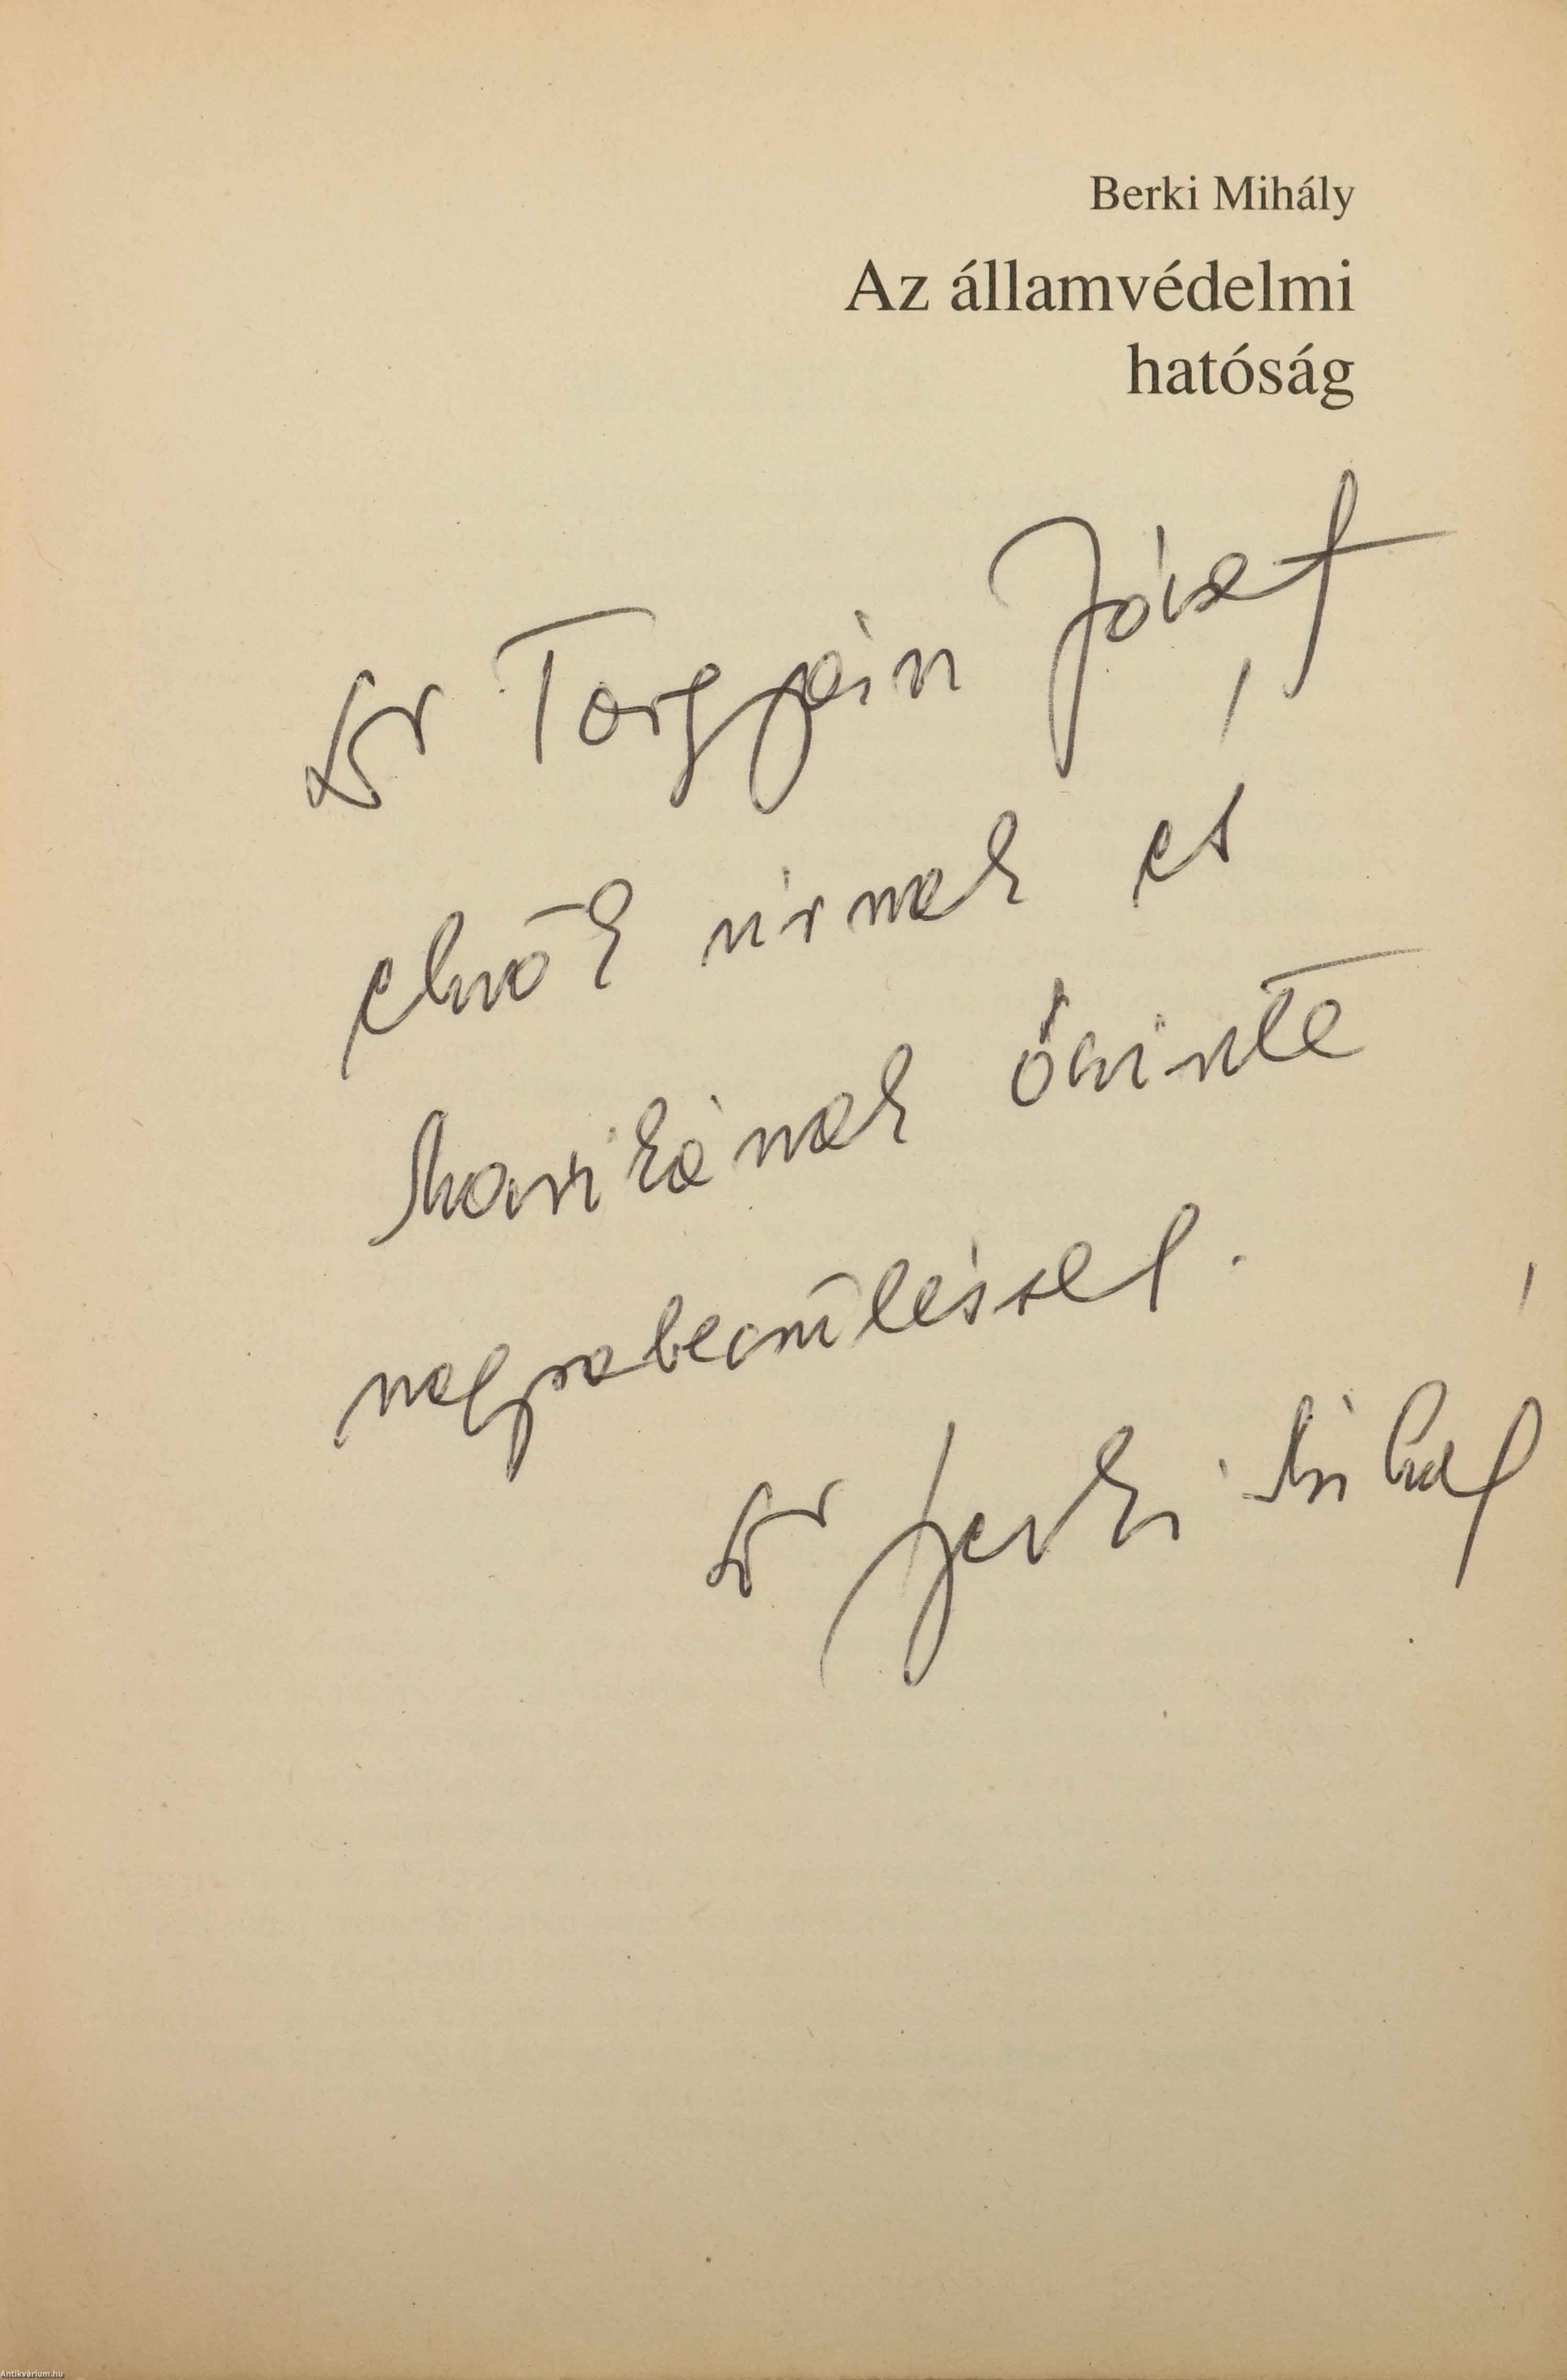 Berki Mihály
Az államvédelmi
hatóság
Dr Torgyán József
elnök úrnak és
Marikának őszinte
nagyrabecsüléssel.
Dr Berki Mihály
Antikvárium.hu